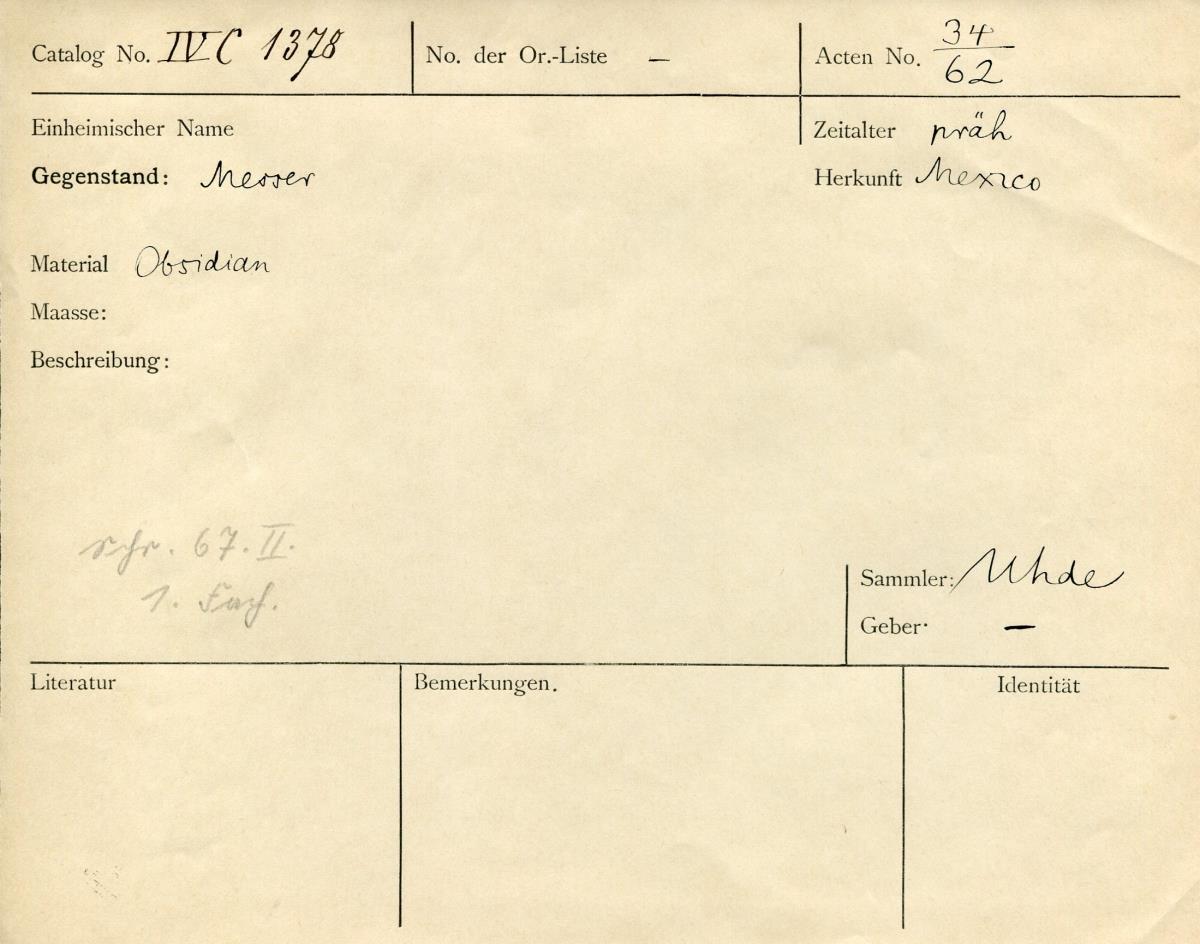 Catalog No. IV C 1378
No. der Or.-Liste —
Acten No. 34/62
Einheimischer Name
Zeitalter präh
Gegenstand: Messer
Herkunft Mexico
Material Obsidian
Maasse:
Beschreibung:
Schr. 67. II.
1. Fach.
Sammler: Uhde
Geber. —
Literatur
Bemerkungen.
Identität